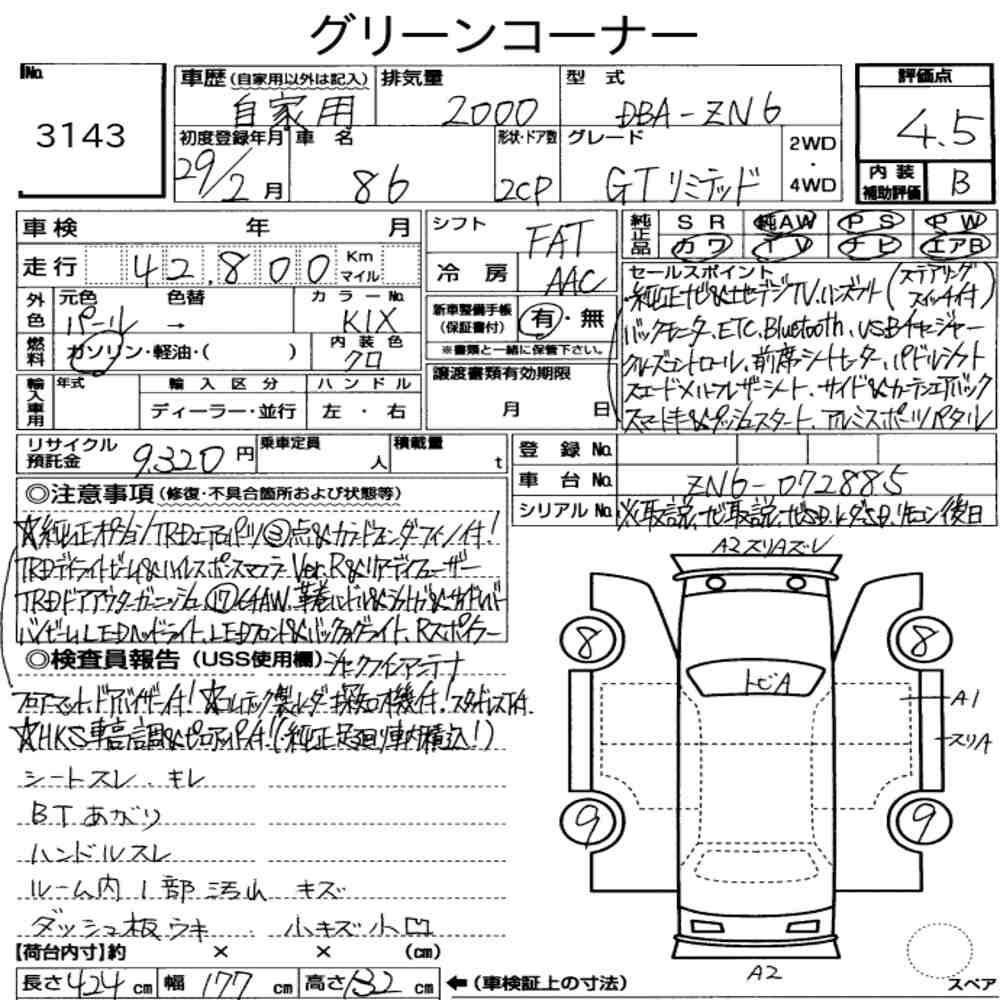 グリーンコーナー
No.
3143
車歴(自家用以外は記入)
自家用
排気量
2000
型式
DBA-ZN6
評価点
4.5
初度登録年月
29/2月
車名
86
形状・ドア数
2CP
グレード
GTリミテッド
2WD
・
4WD
内装
補助評価
B
車検 年 月
シフト
FAT
純正品
SR 純AW PS PW
カワ TV ナビ エアB
走行 42,800 Km
マイル
冷房
AAC
外色
元色 色替
パール →
カラーNo.
K1X
新車整備手帳
(保証書付)
有・無
※書類と一緒に保管下さい。
燃料
ガソリン・軽油・( )
内装色
クロ
輸入車用
年式
輸入区分
ディーラー・並行
ハンドル
左・右
譲渡書類有効期限
月 日
セールスポイント
・純正ナビ&地デジTV、ハンズフリー(ステアリング
スイッチ付)
バックモニター、ETC、Bluetooth、USBチャージャー
クルーズコントロール、前席シートヒーター、パドルシフト
スエード×ハーフレザーシート、サイド&カーテンエアバック
スマートキー&プッシュスタート、アルミスポーツペダル
リサイクル
預託金
9,320円
乗車定員
人
積載量
t
登録No.
車台No.
ZN6-072885
シリアルNo.
※取説、ナビ取説、ナビSD、レーダーSD、リモコン後日
◎注意事項(修復・不具合箇所および状態等)
☆純正オプションTRDエアロパーツ③点&カナードフェンダーフィン付!
TRDデイライトビーム&ハイレスポンスマフラーVer.R&リアディフューザー
TRDドアアウターガーニッシュ、⑰インチAW、革巻ハンドル&シフトノブ&サイドレバー
バイビームLEDヘッドライト、LEDフロント&バックフォグライト、Rスポイラー
◎検査員報告(USS使用欄)
シャークフィンアンテナ
フロアマット、ドアバイザー付!☆コムテック製レーダー探知機付!スタッドレスTA
☆HKS車高調&ピロアッパー付!(純正足廻り車内積込!)
シートスレ、キレ
BTあがり
ハンドルスレ
ルーム内1部汚れ キズ
ダッシュ板ウキ 小キズ小凹
【荷台内寸】約 × × (cm)
長さ 424 cm 幅 177 cm 高さ 132 cm
←(車検証上の寸法)
A2スリAズレ
8
8
トビA
A1
スリA
9
9
A2
スペア